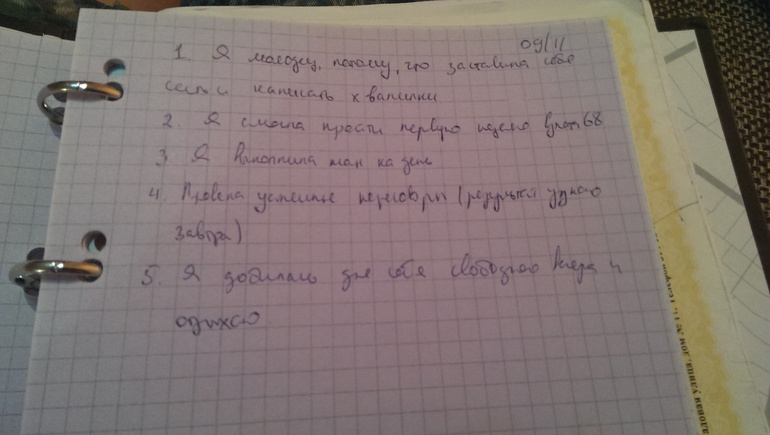 09/11
1. Я молодец, потому, что заставила себя
сесть и написать хвалилки
2. Я смогла пройти первую неделю
3. Я выполнила план на день
4. Провела успешные переговоры (результат узнаю
завтра)
5. Я добилась для себя свободного вечера и
отдыхаю